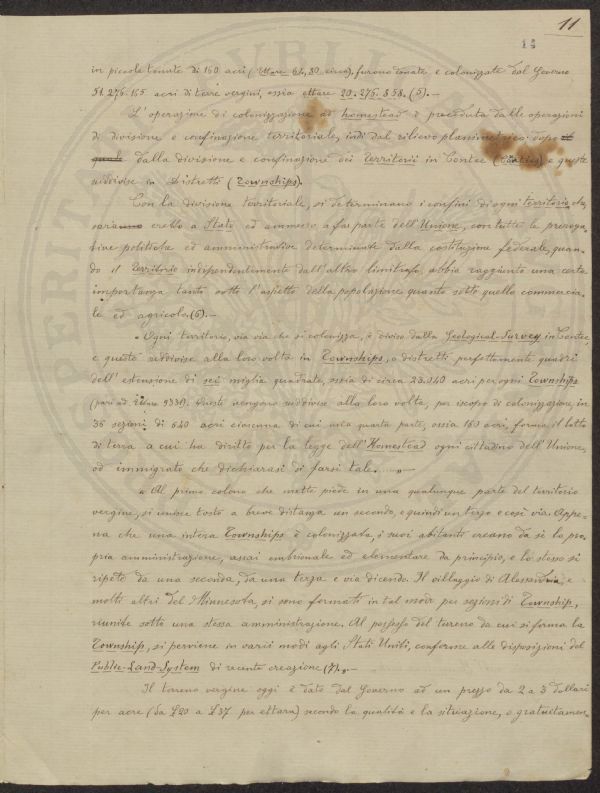 11
16
in piccole tenute di 160 acri (Ettare 64,80 circa), furono donate e colonizzate dal Governo
51.276.155 acri di terre vergini, ossia ettare 20.275.858. (5). –
L'operazione di colonizzazione ad homestead è preceduta dalle operazioni
di divisione e confinazione territoriale, indi dal rilievo planimetrico dopo
dalla divisione e confinazione dei Territorii in Contee (Counties) e queste
suddivise in Distretti (Townships).
Con la divisione territoriale, si determinano i confini di ogni territorio che
eretto a Stato ed ammesso a far parte dell'Unione, con tutte le preroga-
tive politiche ed amministrative determinate dalla costituzione federale, quan-
do il Territorio indipendentemente dall'altro limitrofo, abbia raggiunto una certa
importanza tanto sotto l'aspetto della popolazione quanto sotto quello commercia-
le ed agricolo. (6). –
"Ogni territorio, via via che si colonizza, è diviso dalla Geological-Survey in Contee,
e queste suddivise alla loro volta in Townships, o distretti perfettamente quadri
dell'estensione di sei miglia quadrate, ossia di circa 23.040 acri, per ogni Townships
(pari ad Ettare 9331). Queste vengono suddivise alla loro volta, per iscopo di colonizzazione, in
36 sezioni di 640 acri ciascuna di cui una quarta parte, ossia 160 acri, forma il lotto
di terra a cui ha diritto per la legge dell'Homestead ogni cittadino dell'Unione,
od immigrato che dichiarasi di farsi tale......."–
"Al primo colono che mette piede in una qualunque parte del territorio
vergine, si unisce tosto a breve distanza un secondo, e quindi un terzo e così via. Appe-
na che una intera Townships è colonizzata, i suoi abitanti creano da sè la pro-
pria amministrazione, assai embrionale ed elementare da principio, e lo stesso si
ripete da una seconda, da una terza e via dicendo. Il villaggio di Alessandria, e
molti altri del Minnesota, si sono formati in tal modo per sezioni di Township,
riunite sotto una stessa amministrazione. Al possesso del terreno da cui si forma la
Township, si perviene in varii modi agli Stati Uniti, conforme alle disposizioni del
Public-Land-System di recente creazione (7)". –
Il terreno vergine oggi è dato dal Governo ad un prezzo da 2 a 3 dollari
per acre (da £20 a £37 per ettara) secondo la qualità e la situazione, o gratuitamen-